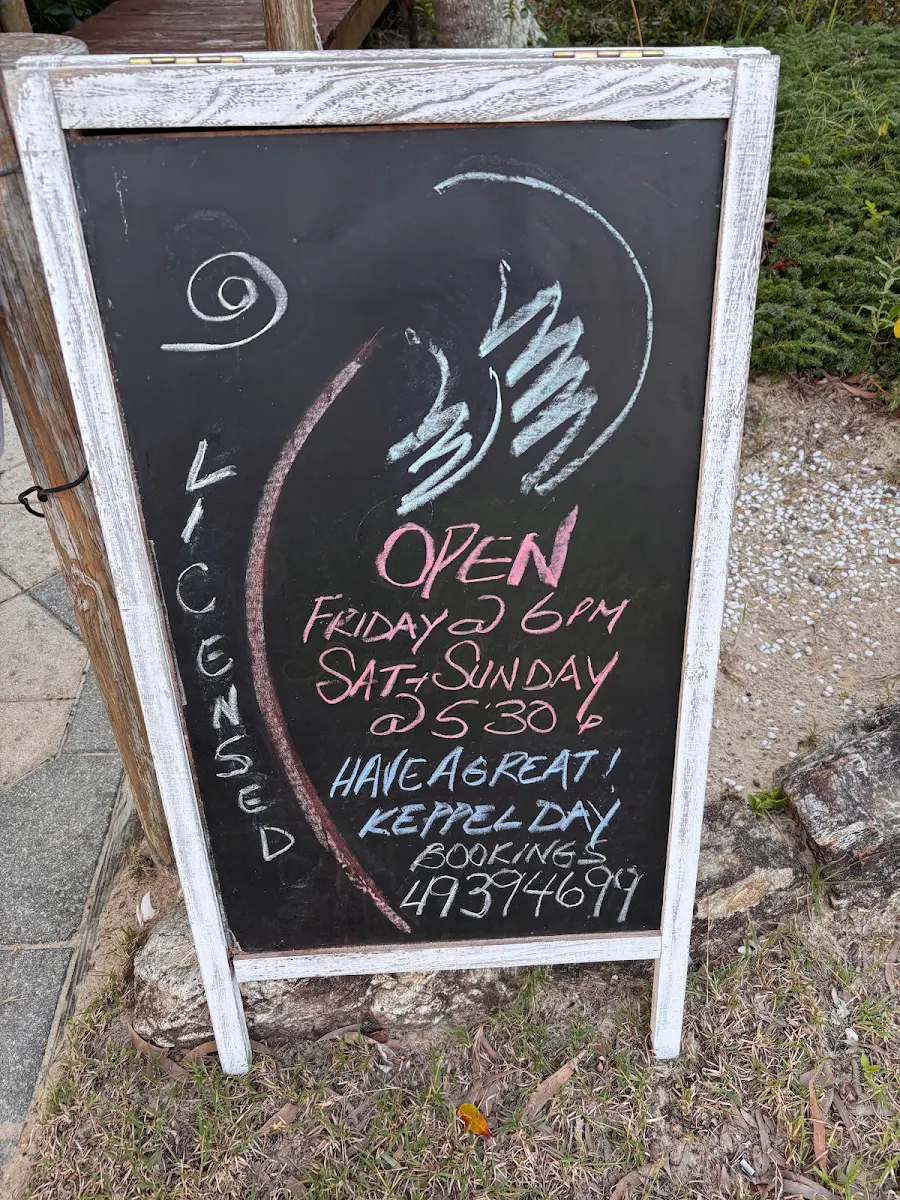 LICENSED
OPEN
FRIDAY @ 6PM
SAT+SUNDAY
@ 5:30 p
HAVE A GREAT!
KEPPEL DAY
BOOKINGS
49394699